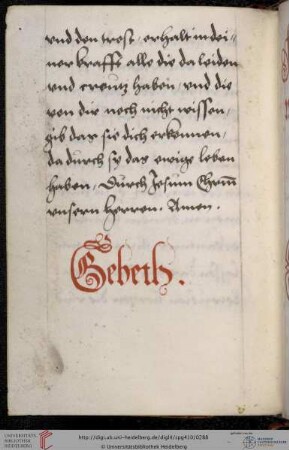 vnd den trost / erhalt in dei-
ner krafft alle die da leiden
vnd creutz haben / vnd die
von dir noch nicht wissen /
gib das sie dich erkennen /
da durch sy das ewige leben
haben / Durch Jesum Chrm̄
vnsern herren. Amen.
Gebeth.
UNIVERSITÄTS-
BIBLIOTHEK
HEIDELBERG
http://digi.ub.uni-heidelberg.de/diglit/cpg450/0288
© Universitätsbibliothek Heidelberg